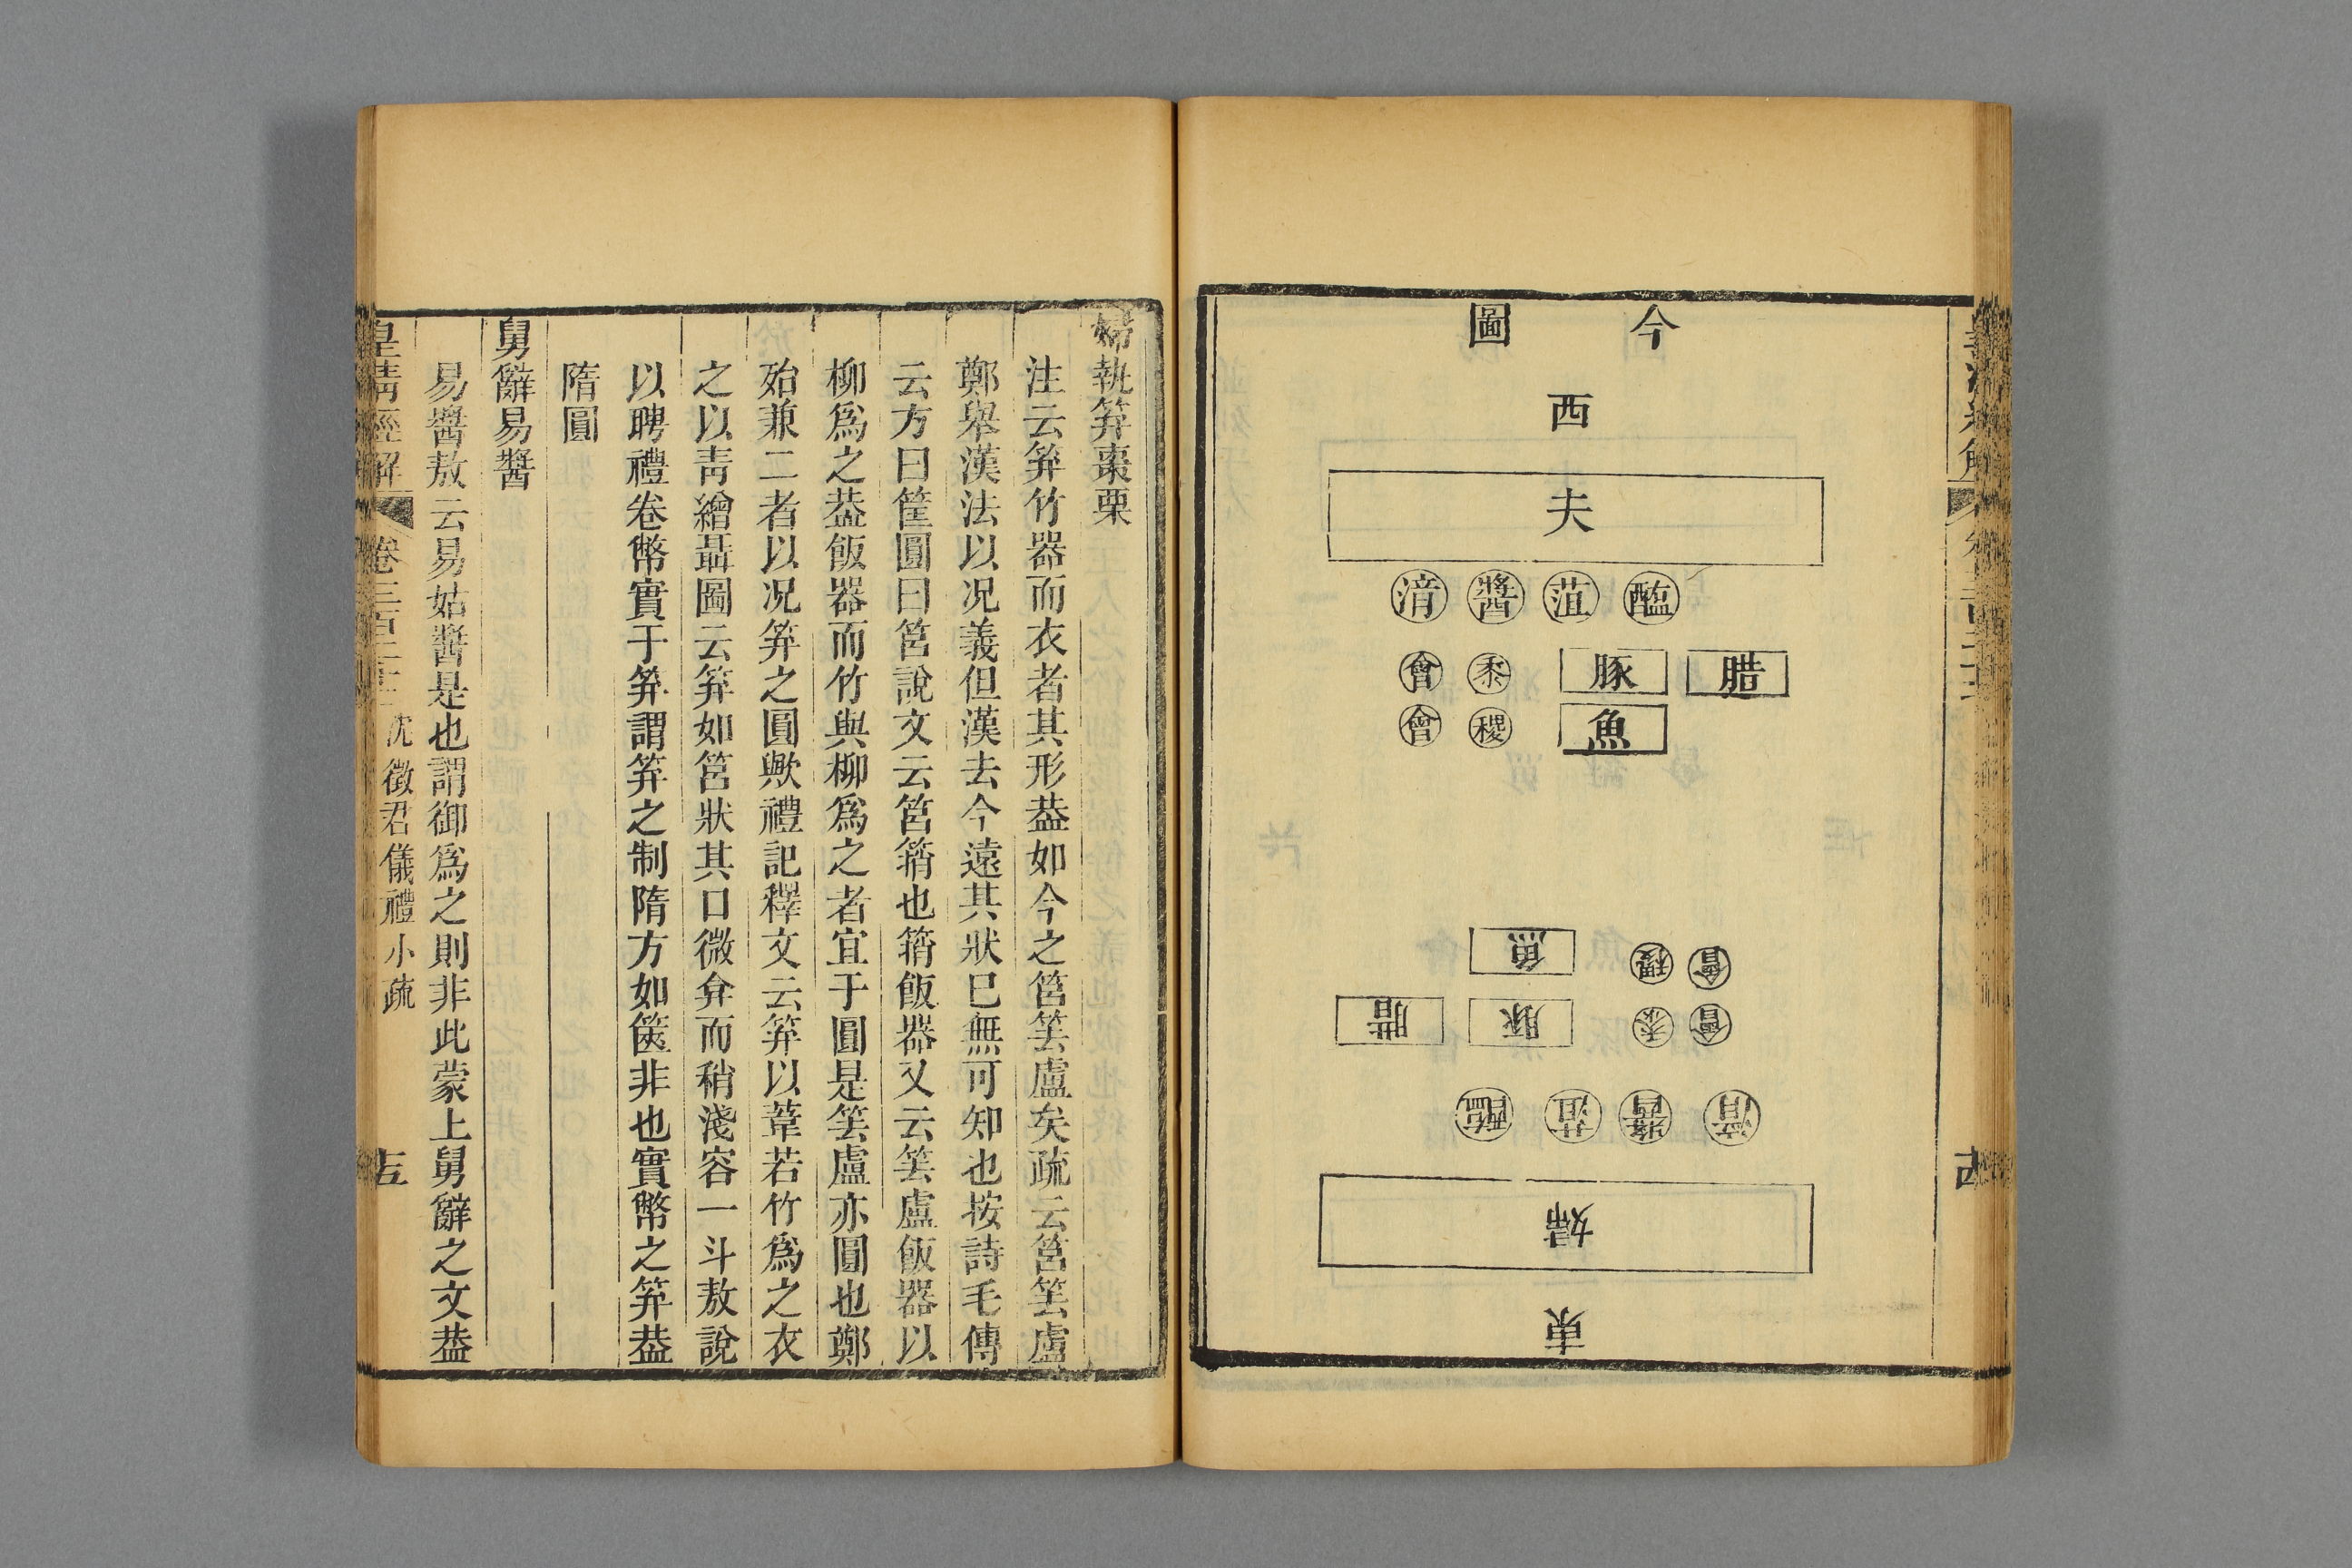 今圖
西
夫
醢 菹 醬 湆
腊 豚 黍 會
魚 稷 會
魚 稷 會
腊 豚 黍 會
醢 菹 醬 湆
婦
東
婦執笲棗栗
注云笲竹器而衣者其形葢如今之筥䇬盧矣疏云筥䇬盧
鄭舉漢法以况義但漢去今遠其狀已無可知也按詩毛傳
云方曰筐圓曰筥說文云筥䈰也䈰飯器又云䇬盧飯器以
柳爲之葢飯器而竹與柳爲之者宜于圓是䇬盧亦圓也鄭
殆兼二者以况笲之圓歟禮記釋文云笲以葦若竹爲之衣
之以青繒聶圖云笲如筥狀其口微弇而稍淺容一斗敖說
以聘禮卷幣實于笲謂笲之制隋方如篋非也實幣之笲葢
隋圓
舅辭易醬
易醬敖云易姑醬是也謂御爲之則非此蒙上舅辭之文葢
皇清經解 卷三百二十 沈徵君儀禮小疏 十五